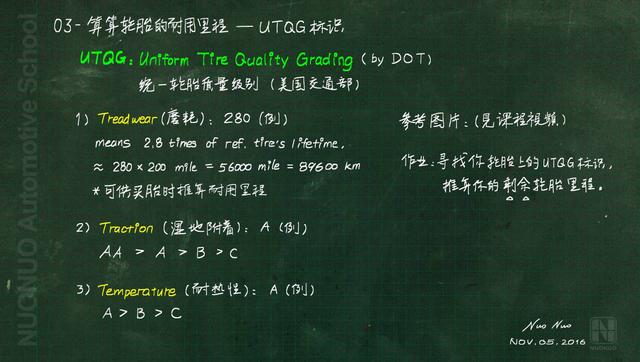 03-算算轮胎的耐用里程 — UTQG标识
UTQG: Uniform Tire Quality Grading (by DOT)
统一轮胎质量级别 (美国交通部)
1) Treadwear (磨耗): 280 (例)
means 2.8 times of ref. tire's lifetime,
≈ 280×200 mile = 56000 mile = 89600 km
*可供买胎时推算耐用里程
2) Traction (湿地附着): A (例)
AA > A > B > C
3) Temperature (耐热性): A (例)
A > B > C
参考图片: (见课程视频)
作业: 寻找你轮胎上的UTQG标识,
推算你的剩余轮胎里程。
Nuo Nuo
NOV.05.2016
NUONUO
NUONUO Automotive School